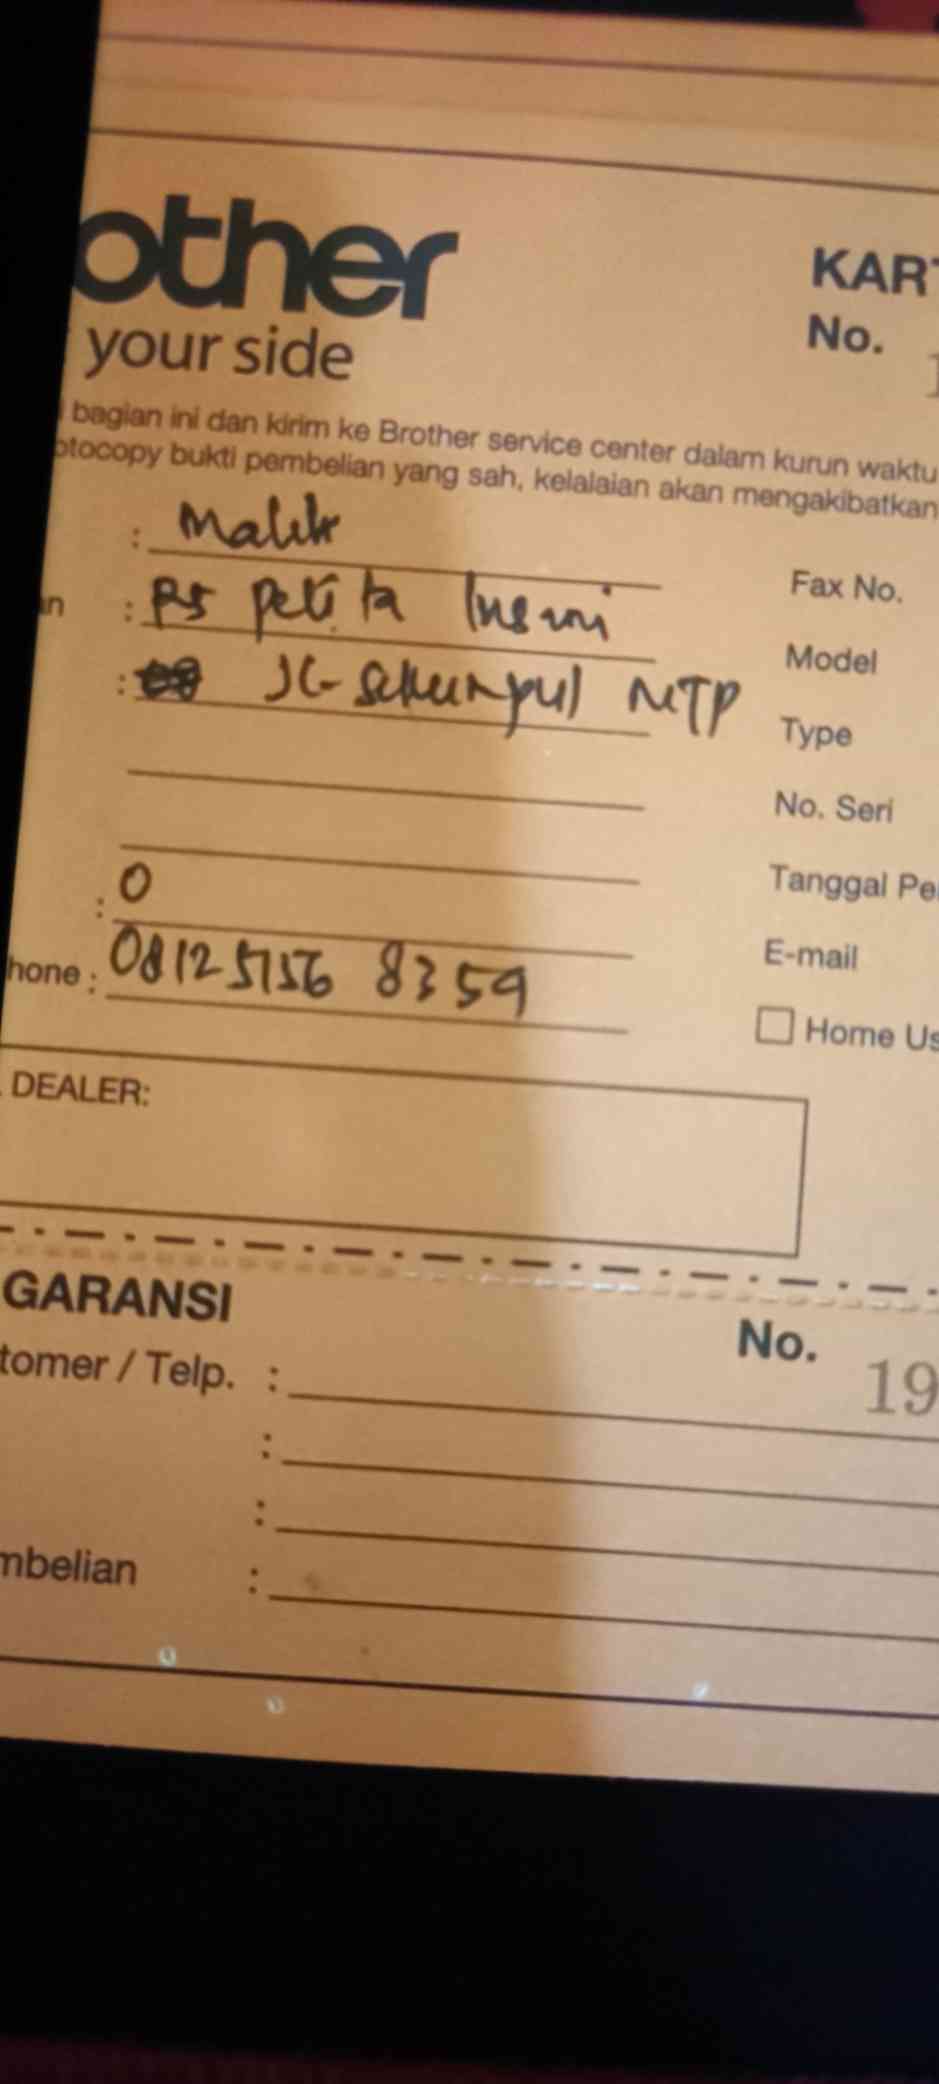 other
your side
KART
No.
bagian ini dan kirim ke Brother service center dalam kurun waktu
otocopy bukti pembelian yang sah, kelalaian akan mengakibatkan
: Malik
Fax No.
an : Pelita Insani
Model
: Sekumpul MTP
Type
No. Seri
Tanggal Pe
: 0
E-mail
hone : 08125156 8359
Home Us
DEALER:
GARANSI
No. 19
tomer / Telp. :
:
:
mbelian :